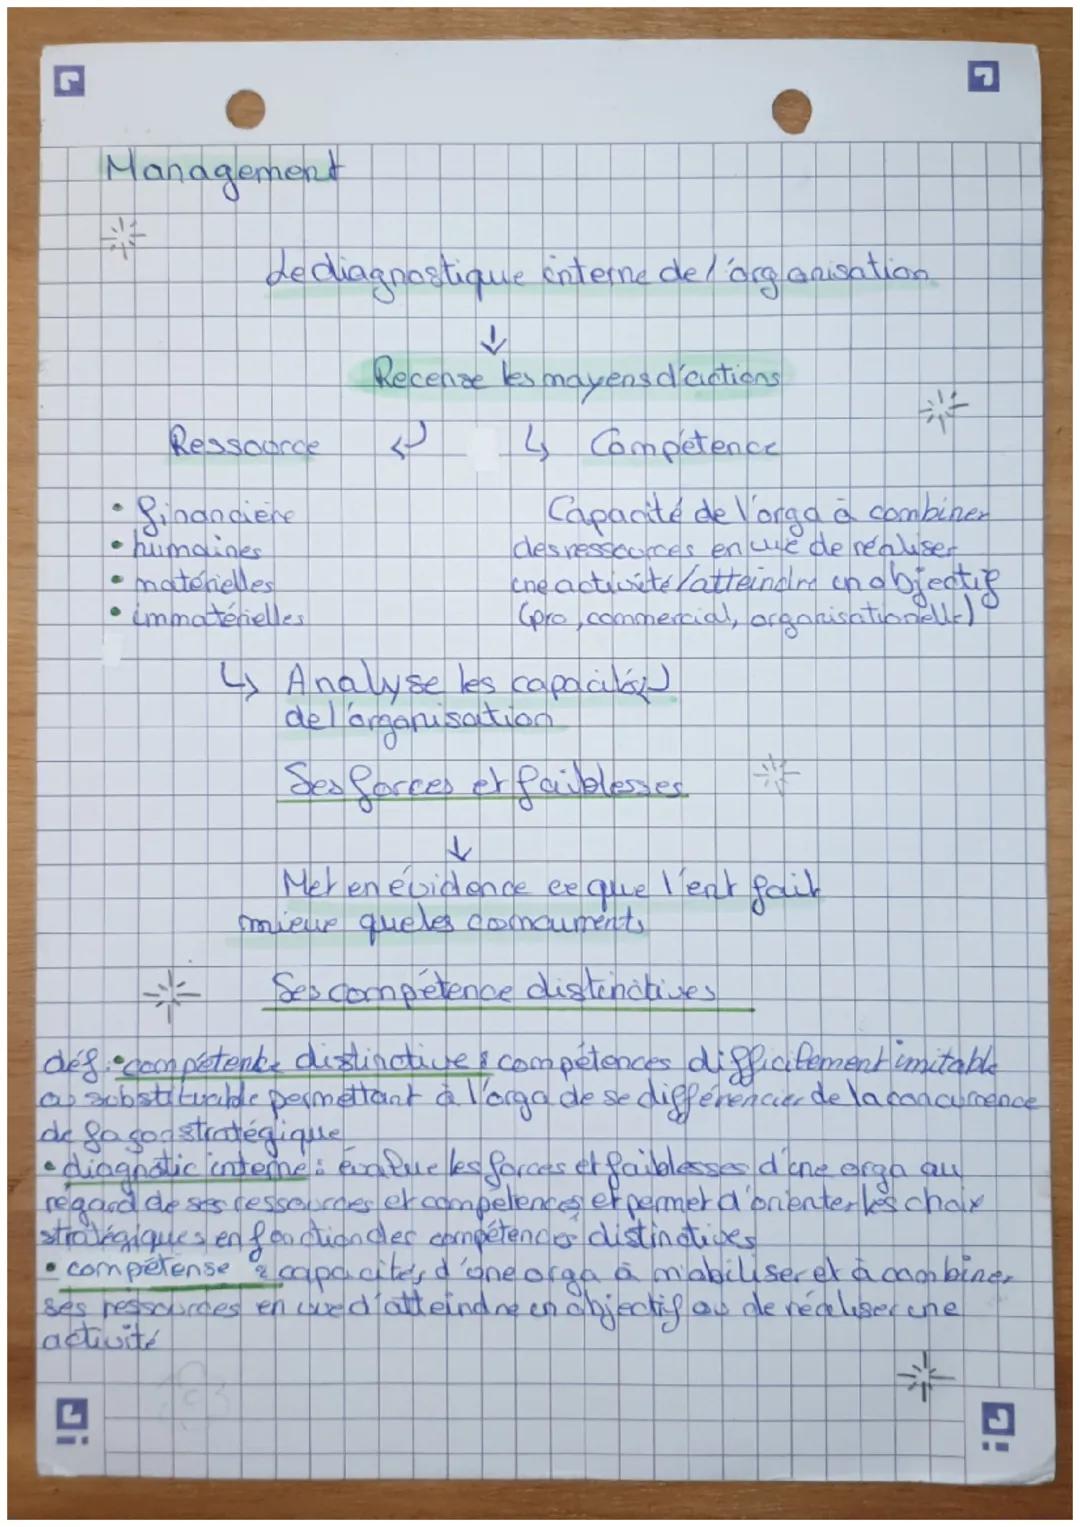 Management
Le diagnostique interne de l'organisation
↓
Recense les moyens d'actions
Ressource ↲ ↳ Compétence
• financière
• humaines
• matérielles
• immatérielles
Capacité de l'orga à combiner
des ressources en vue de réaliser
une activité/atteindre un objectif
(pro, commercial, organisationelle)
↳ Analyse les capacités
de l'organisation
Ses forces et faiblesses
↓
Met en évidence ce que l'ent fait
mieux que les concurrents
Ses compétence distinctives
déf: • compétence distinctive : compétences difficilement imitable
ou substituable permettant à l'orga de se différencier de la concurrence
de façon stratégique
• diagnostic interne : évalue les forces et faiblesses d'une orga au
regard de ses ressources et compétences et permet d'orienter les choix
stratégiques en fonction des compétences distinctives
• compétense : capacités d'une orga à mobiliser et à combiner
ses ressources en vue d'atteindre un objectif ou de réaliser une
activité